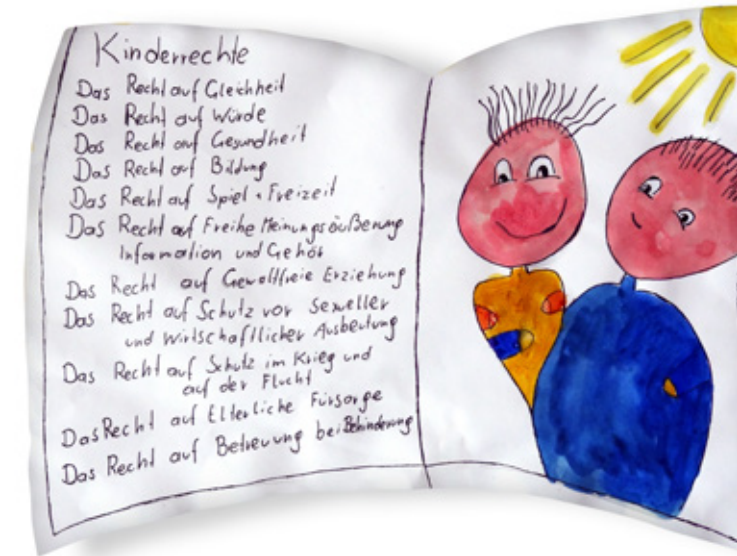 Kinderrechte
Das Recht auf Gleichheit
Das Recht auf Würde
Das Recht auf Gesundheit
Das Recht auf Bildung
Das Recht auf Spiel + Freizeit
Das Recht auf Freihe Meinungsäußerung
Information und Gehör
Das Recht auf Gewaltfreie Erziehung
Das Recht auf Schutz vor Sexueller
und Wirtschaftlicher Ausbeutung
Das Recht auf Schutz im Krieg und
auf der Flucht
Das Recht auf Elterliche Fürsorge
Das Recht auf Betreuung bei Behinderung